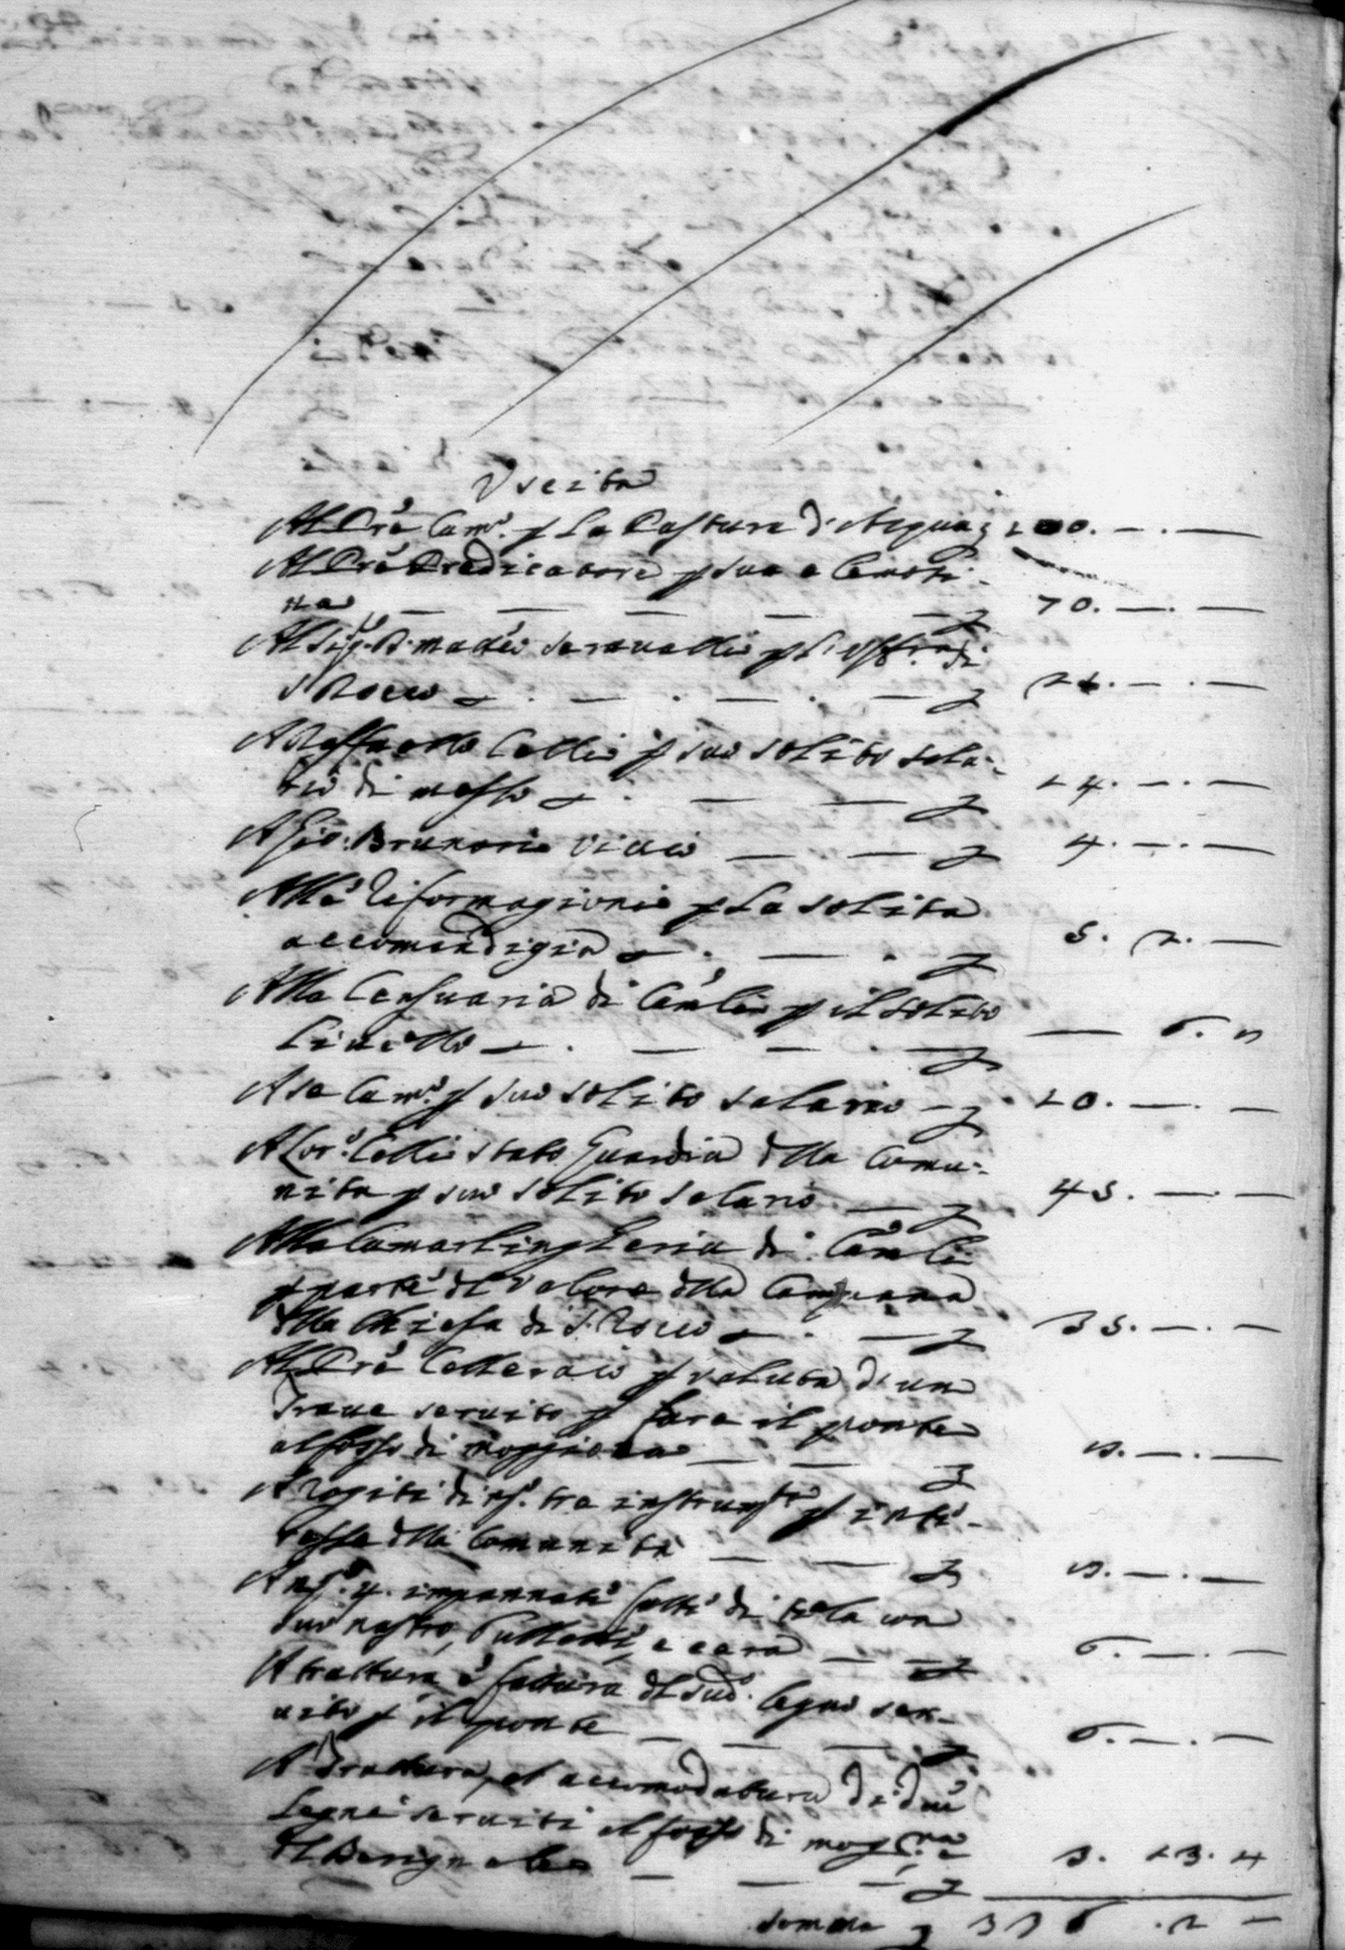 Uscita
Al Pre Camo. p La Pastura d'Acqua 3 100. —. —
Al Pre Predicatore p sua e Lemosi-
na — — — — 3 70. —. —
Al Sig. D. Matteo Seravalli p l'Uffizio di
S Rocco — . — . — . — 3 —. —
A Raffaello Celli p suo solito sala-
rio di messo — . — — 3 14. —. —
A Gio: Brunori — — 3 4. —. —
Alle Riformagioni p La solita
accomandigia — . — . 3 5. 2. —
Alla Censuaria di p il solito
Livello — . — — . — 3 — 6. 
A Camo. p suo solito salario — 3 20. —. —
A Lor. Celli stato Guardia dlla Comu-
nita p suo solito salario — 3 45. —. —
Alla Camarlingheria di
p parte dl valore dlla Campana
dlla Chiesa di S. Rocco — . — 3 35. —. —
Al Pre Celleraio p valuta d'un
Trave servito p fare il ponte
al fosso di Moggiona — — 3 —. —
A rogiti di tre instrumti p inte-
resse dlla Comunità — — 3 —. —
A impannate fatte di tela con
suo nastro, Bullette, e cera — — 3 6. —. —
A trattura e fattura dl sudo. legno ser-
vito p il ponte — — — 3 6. —. —
A Trattura, et accomodatura di due
Legni serviti al fosso di
dl — — — 3 3. 13. 4
Somma 3 336 . 2 —